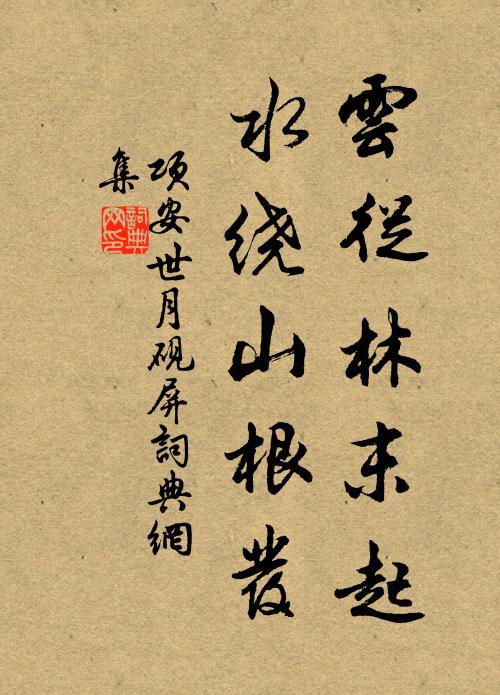 雲從林末起
水绕山根發
项安世月砚屏詞典網
集
詞典
网印